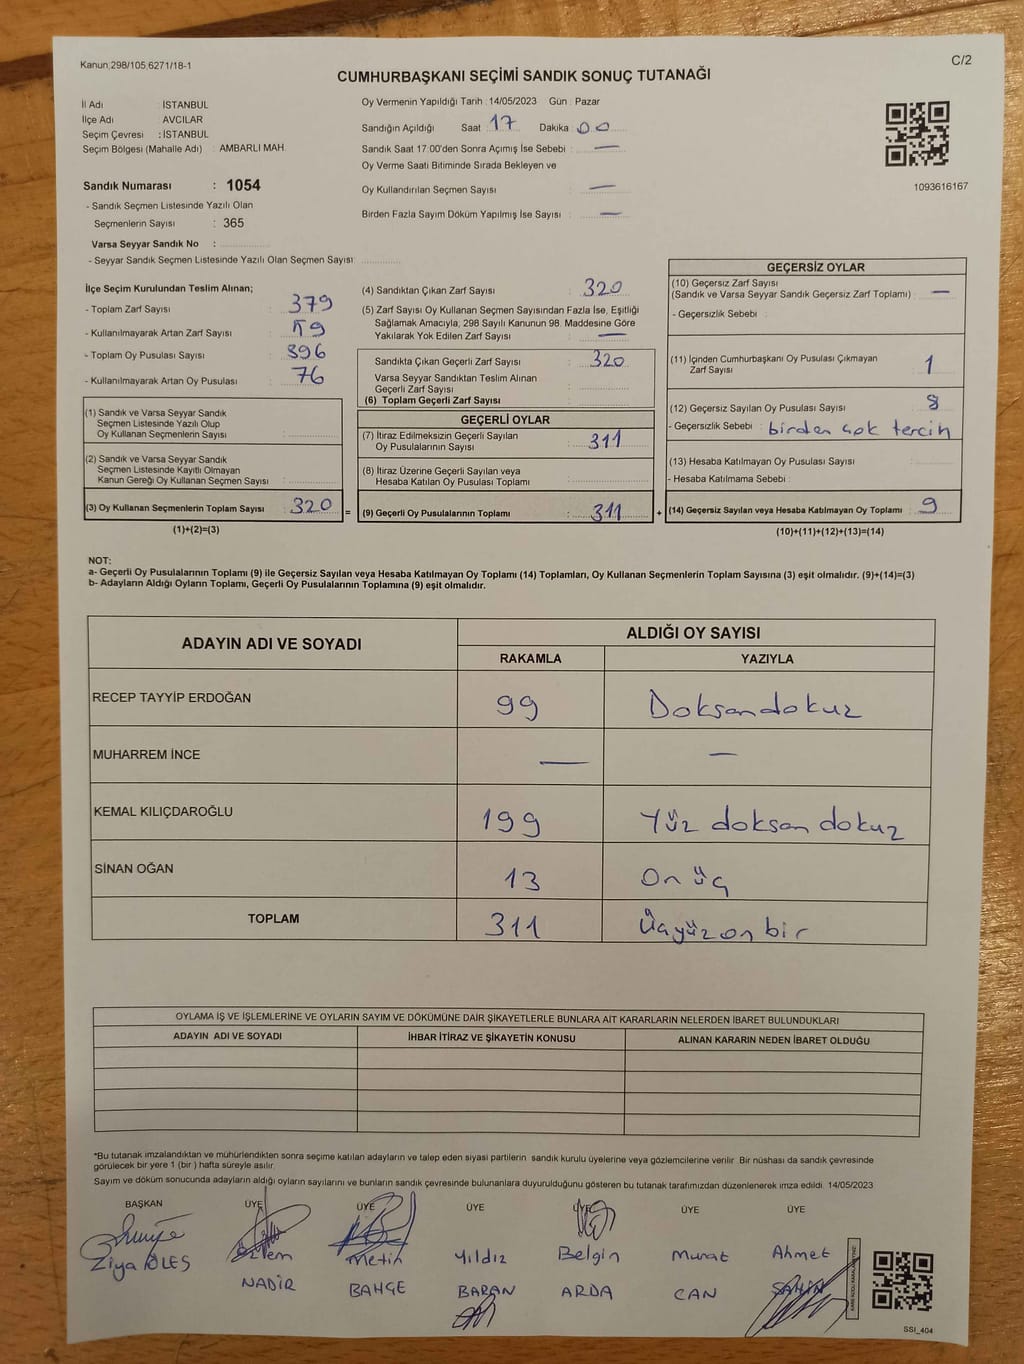 Kanun;298/105,6271/18-1
C/2
CUMHURBAŞKANI SEÇİMİ SANDIK SONUÇ TUTANAĞI
İl Adı : İSTANBUL
İlçe Adı AVCILAR
Seçim Çevresi : İSTANBUL
Seçim Bölgesi (Mahalle Adı) : AMBARLI MAH.
Sandık Numarası : 1054
- Sandık Seçmen Listesinde Yazılı Olan
Seçmenlerin Sayısı : 365
Varsa Seyyar Sandık No :
- Seyyar Sandık Seçmen Listesinde Yazılı Olan Seçmen Sayısı:
Oy Vermenin Yapıldığı Tarih : 14/05/2023 Gün : Pazar
Sandığın Açıldığı Saat : 17 Dakika : 00
Sandık Saat 17:00'den Sonra Açımış İse Sebebi : —
Oy Verme Saati Bitiminde Sırada Bekleyen ve
Oy Kullandırılan Seçmen Sayısı : —
Birden Fazla Sayım Döküm Yapılmış İse Sayısı : —
1093616167
İlçe Seçim Kurulundan Teslim Alınan;
- Toplam Zarf Sayısı : 379
- Kullanılmayarak Artan Zarf Sayısı : 59
- Toplam Oy Pusulası Sayısı : 396
- Kullanılmayarak Artan Oy Pusulası : 76
(1) Sandık ve Varsa Seyyar Sandık
Seçmen Listesinde Yazılı Olup
Oy Kullanan Seçmenlerin Sayısı :
(2) Sandık ve Varsa Seyyar Sandık
Seçmen Listesinde Kayıtlı Olmayan
Kanun Gereği Oy Kullanan Seçmen Sayısı :
(3) Oy Kullanan Seçmenlerin Toplam Sayısı : 320
(1)+(2)=(3)
=
(4) Sandıktan Çıkan Zarf Sayısı : 320
(5) Zarf Sayısı Oy Kullanan Seçmen Sayısından Fazla İse, Eşitliği
Sağlamak Amacıyla, 298 Sayılı Kanunun 98. Maddesine Göre
Yakılarak Yok Edilen Zarf Sayısı : —
Sandıkta Çıkan Geçerli Zarf Sayısı : 320
Varsa Seyyar Sandıktan Teslim Alınan
Geçerli Zarf Sayısı :
(6) Toplam Geçerli Zarf Sayısı
GEÇERLİ OYLAR
(7) İtiraz Edilmeksizin Geçerli Sayılan
Oy Pusulalarının Sayısı : 311
(8) İtiraz Üzerine Geçerli Sayılan veya
Hesaba Katılan Oy Pusulası Toplamı :
(9) Geçerli Oy Pusulalarının Toplamı : 311
+
GEÇERSİZ OYLAR
(10) Geçersiz Zarf Sayısı
(Sandık ve Varsa Seyyar Sandık Geçersiz Zarf Toplamı) : —
- Geçersizlik Sebebi :
(11) İçinden Cumhurbaşkanı Oy Pusulası Çıkmayan
Zarf Sayısı : 1
(12) Geçersiz Sayılan Oy Pusulası Sayısı : 8
- Geçersizlik Sebebi : birden çok tercih
(13) Hesaba Katılmayan Oy Pusulası Sayısı :
- Hesaba Katılmama Sebebi :
(14) Geçersiz Sayılan veya Hesaba Katılmayan Oy Toplamı : 9
(10)+(11)+(12)+(13)=(14)
NOT:
a- Geçerli Oy Pusulalarının Toplamı (9) ile Geçersiz Sayılan veya Hesaba Katılmayan Oy Toplamı (14) Toplamları, Oy Kullanan Seçmenlerin Toplam Sayısına (3) eşit olmalıdır. (9)+(14)=(3)
b- Adayların Aldığı Oyların Toplamı, Geçerli Oy Pusulalarının Toplamına (9) eşit olmalıdır.
ADAYIN ADI VE SOYADI
ALDIĞI OY SAYISI
RAKAMLA YAZIYLA
RECEP TAYYİP ERDOĞAN 99 Doksandokuz
MUHARREM İNCE — —
KEMAL KILIÇDAROĞLU 199 Yüz doksan dokuz
SİNAN OĞAN 13 On üç
TOPLAM 311 Üçyüz on bir
OYLAMA İŞ VE İŞLEMLERİNE VE OYLARIN SAYIM VE DÖKÜMÜNE DAİR ŞİKAYETLERLE BUNLARA AİT KARARLARIN NELERDEN İBARET BULUNDUKLARI
ADAYIN ADI VE SOYADI İHBAR İTİRAZ VE ŞİKAYETİN KONUSU ALINAN KARARIN NEDEN İBARET OLDUĞU
*Bu tutanak imzalandıktan ve mühürlendikten sonra seçime katılan adayların ve talep eden siyasi partilerin sandık kurulu üyelerine veya gözlemcilerine verilir. Bir nüshası da sandık çevresinde
görülecek bir yere 1 (bir ) hafta süreyle asılır.
Sayım ve döküm sonucunda adayların aldığı oyların sayılarını ve bunların sandık çevresinde bulunanlara duyurulduğunu gösteren bu tutanak tarafımızdan düzenlenerek imza edildi. 14/05/2023
BAŞKAN ÜYE ÜYE ÜYE ÜYE ÜYE ÜYE
Ziya ÖLES Metin Yıldız Belgin Murat Ahmet
NADİR BAHÇE BARAN ARDA CAN ŞAHİN
SSI_404